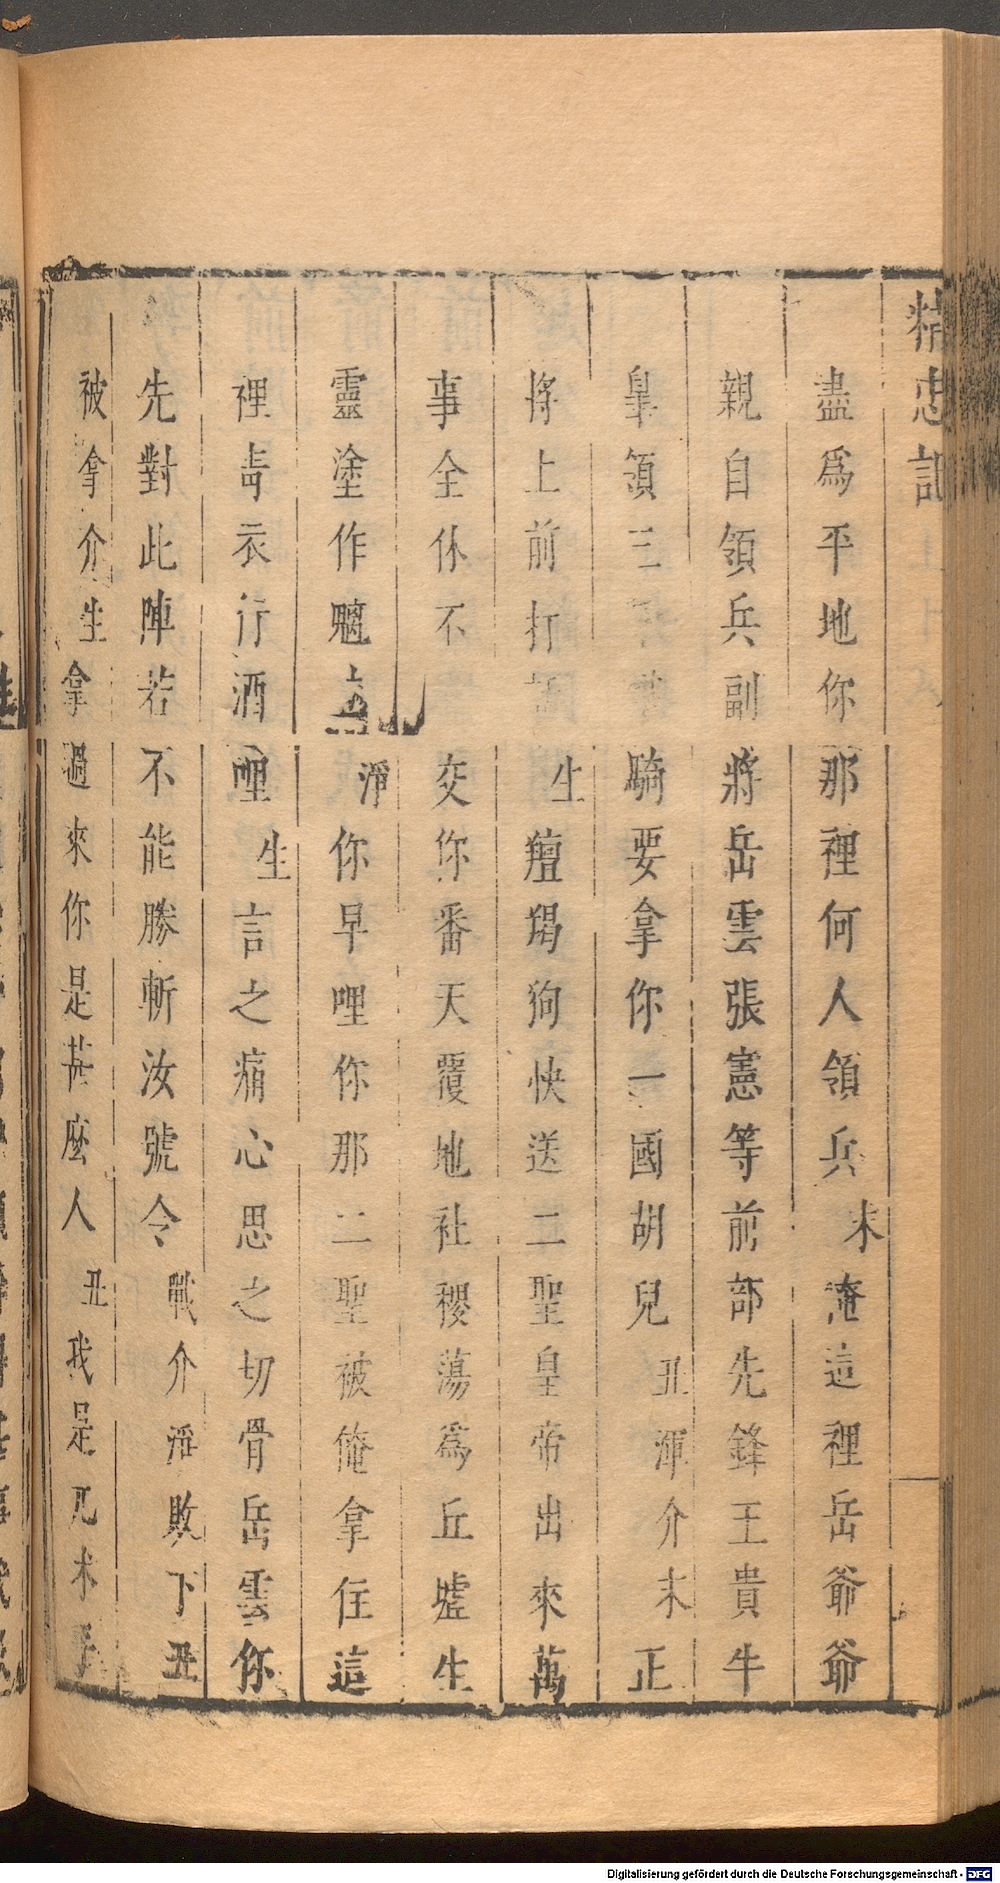 精忠記
盡爲平地你那裡何人領兵末淹這裡岳爺爺
親自領兵副將岳雲張憲等前部先鋒王貴牛
皐領三騎要拿你一國胡兒丑渾介末正
將上前打生羶羯狗快送二聖皇帝出來萬
事全休不交你番天覆地社稷蕩爲丘墟生
靈塗作魍淨你早哩你那二聖被俺拿住這
裡靑衣行酒哩生言之痛心思之切骨岳雲你
先對此陣若不能勝斬汝號令戰介淨敗下丑
被拿介生拿過來你是甚麼人丑我是兀术
Digitalisierung gefördert durch die Deutsche Forschungsgemeinschaft - DFG